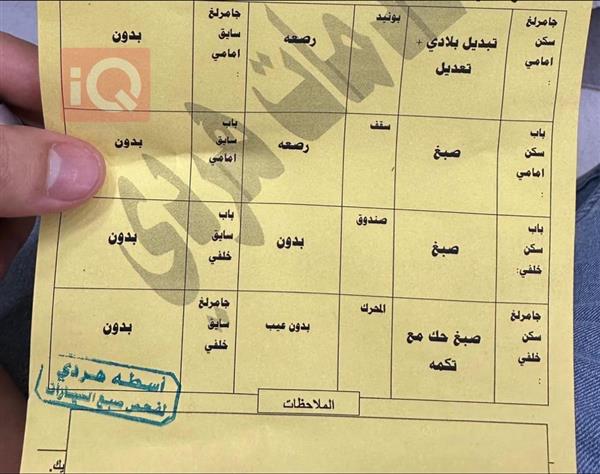 جامرلغ سكن امامي
تبديل بلادي + تعديل
بونيد
رصعه
جامرلغ سايق امامي :
بدون
باب سكن امامي :
صبغ
سقف
رصعه
باب سايق امامي :
بدون
باب سكن خلفي:
صبغ
صندوق
بدون
باب سايق خلفي
بدون
جامرلغ سكن خلفي :
صبغ حك مع تكمه
المحرك
بدون عيب
جامرلغ سايق خلفي :
بدون
الملاحظات
أسطه هردي
لفحص صبغ السيارات
iQ